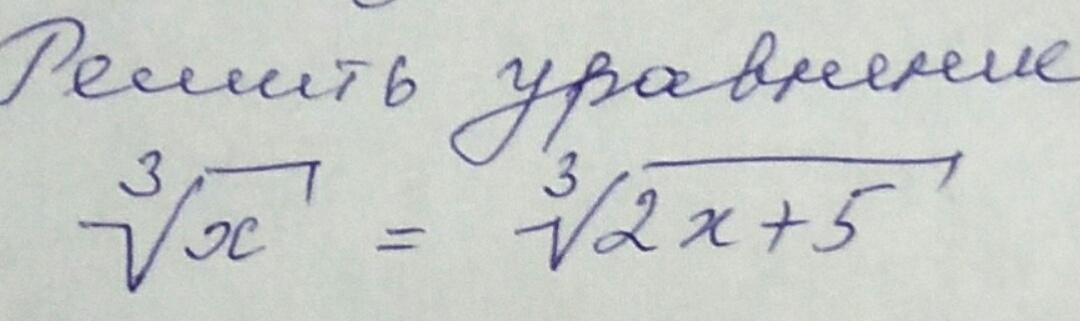 Решить уравнение
∛x = ∛2x+5